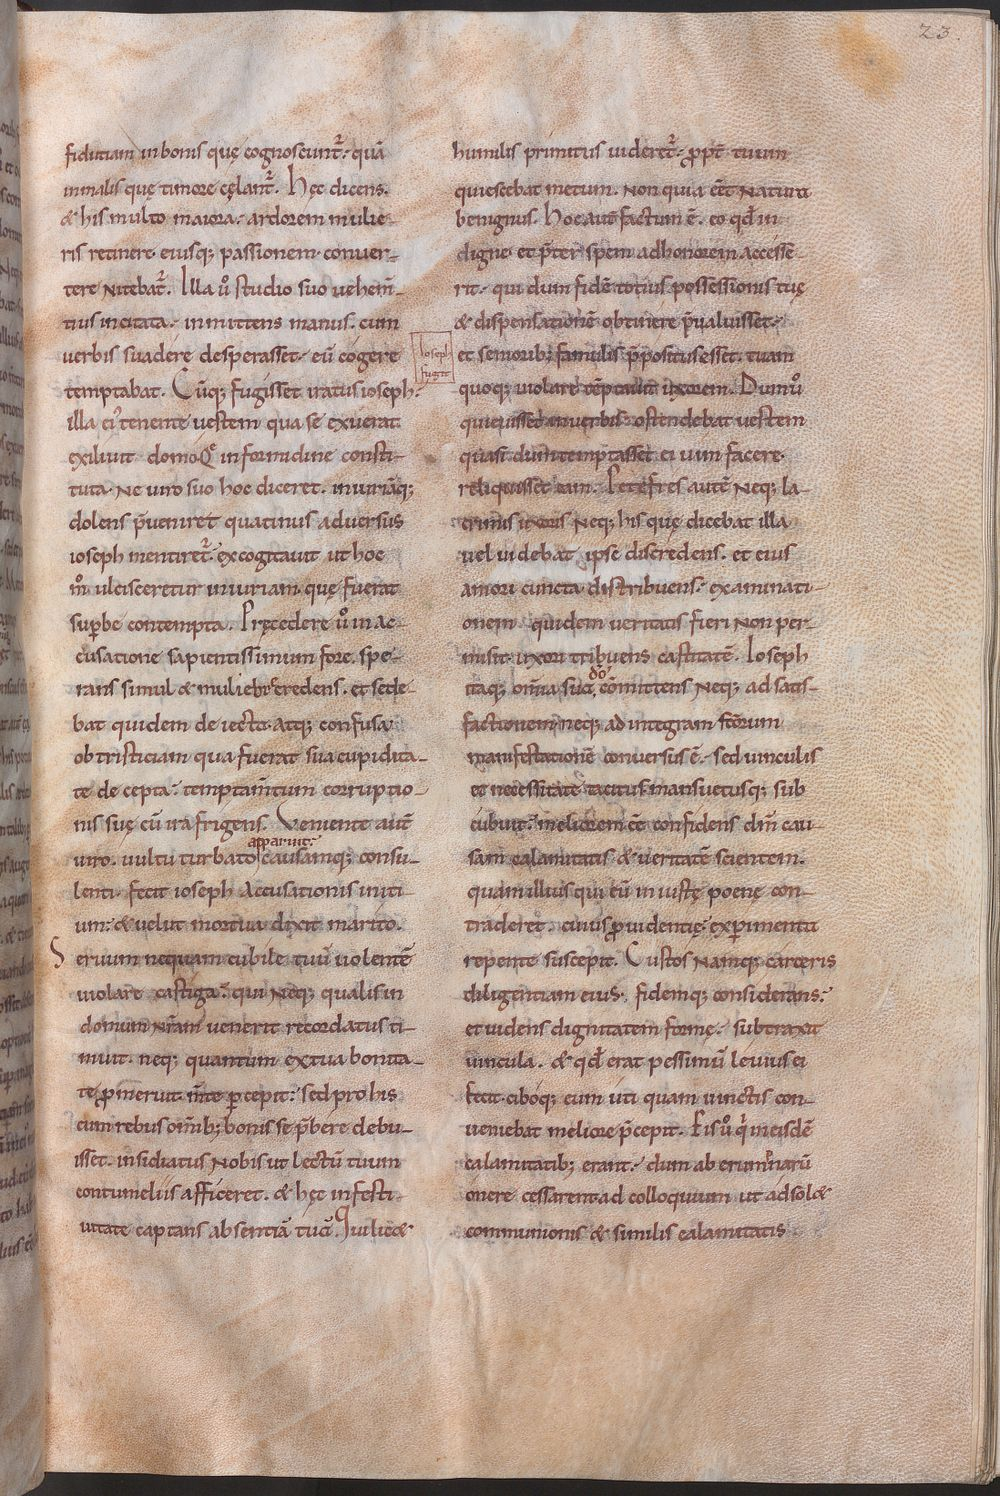 23.
fidutiam in bonis quę cognoscunt᷑. quā
in malis quę timore cęlant᷑. Hęc dicens.
& his multo maiora. ardorem mulie-
ris retinere eiusq; passionem conuer-
tere nitebat᷑. Illa ů studio suo uehem̄-
tius incitata. inmittens manus. cum
uerbis suadere desperasset. eū cogere
temptabat. Cūq; fugisset iratus ioseph.
illa ei' tenente uestem qua se exuerat
exiliuit domo in formidine consti-
tuta. Ne uiro suo hoc diceret. iniuriāq;
dolens p̄ueniret quatinus aduersus
ioseph mentiret᷑. excogitauit ut hoc
m̊ ulcisceretur iniuriam quę fuerat
supbe contempta. Pręcedere ů in ac-
cusatione sapientissimum fore. spe-
rans simul & muliebre credens. et sede-
bat quidem deiecta. atq; confusa
ob tristiciam qua fuerat sua cupidita-
te decepta. temptam̄tium corruptio-
nis suę cū ira frigens. Veniente aut̄
apparuit.
uiro. uultu turbato causamq; consu-
lenti. fecit ioseph accusationis initi-
um. & uelut mortua dixit marito.
Seruum nequam cubile tuū uolentē
uiolare castiga. qui neq; qualis in
domum nr̄am uenerit recordatus ti-
muit. neq; quantum ex tua bonita-
te promeruit in te pcepit. sed pro his
cum rebus om̄ib; bonis se p̄bere debu-
isset. insidiatus nobis ut lectū tuum
contumeliis afficeret. & hęc in festi-
uitate captans absentiā tuā. Qui licet
Ioseph
fugit
humilis primitus uideret᷑. ppt̄ tuum
quiescebat metum. Non quia eēt natura
benignus. Hoc aut̄ factum ē. eo qd̄ in-
digne. et p̄ter spem ad honorem accesse-
rit. qui dum fidē totius possessionis tuę
& dispensationē obtinere p̄ualuisset.
et seniorib; famulis p̄positus esset. tuam
quoq; uiolare tēptauit uxorem. Dum ů
quieuisset in uerbis. ostendebat uestem
quasi dum temptasset ei uim facere.
reliquisset eam. Petefres autē neq; la-
crimis uxoris neq; his quę dicebat illa
uel uidebat ipse discredens. et eius
amori cuncta distribuens. examinati-
onem quidem ueritatis fieri non per-
misit. uxori tribuens castitatē. Ioseph
dō
itaq; om̄ia sua, cōmittens neq; ad satis-
factionem neq; ad integram factorum
manifestationē conuersus ē. sed uinculis
et necessitate tacitus mansuetusq; sub
cubuit. meliorem eē confidens dn̄m cau-
sam calamitatis & ueritatē scientem.
quam illius qui eū iniustę poenę con-
traderet. cuius prouidentię experimenta
repente suscepit. Custos namq; carceris
diligentiam eius. fidemq; considerans.
et uidens dignitatem formę. subtraxit
uincula. & qd̄ erat pessimū leuius ei
fecit. ciboq; eum uti quam uinctis con-
ueniebat meliore p̄cepit. His ů qui in eisdē
calamitatib; erant. dum ab erumnarū
onere cessarent. ad colloquium ut ad solet
communionis & similis calamitatis